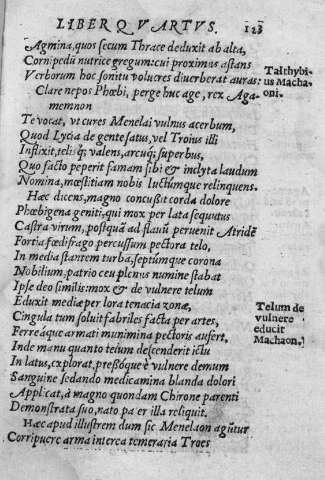 LIBER QVARTVS. 123
Agmina, quos secum Thrace deduxit ab alta,
Cornipedū nutrice gregum: cui proximus astans
Verborum hoc sonitu volucres diuerberat auras:
Talthybi-
us Macha-
oni.
Clare nepos Phœbi, perge huc age, rex Aga-
memnon
Te vocat, vt cures Menelai vulnus acerbum,
Quod Lycia de gente satus, vel Troius illi
Inflixit, telisq́; valens, arcuq́; superbus,
Quo facto peperit famam sibi & inclyta laudum
Nomina, mœstitiam nobis luctumque relinquens.
Hæc dicens, magno concußit corda dolore
Phœbigena geniti, qui mox per lata sequutus
Castra virum, postquā ad flauū peruenit Atridē
Fortia fœdifrago percussum pectora telo,
In media stantem turba, septúmque corona
Nobilium, patrio ceu plenus numine stabat
Ipse deo similis: mox & de vulnere telum
Eduxit mediæ per lora tenacia zonæ,
Telum de
vulnere
educit
Machaon.
Cingula tum soluit fabriles facta per artes,
Ferreáque armati munimina pectoris aufert,
Inde manu quanto telum descenderit ictu
In latus, explorat, pressóque è vulnere demum
Sanguine sedando medicamina blanda dolori
Applicat, à magno quondam Chirone parenti
Demonstrata suo, nato pater illa reliquit.
Hæc apud illustrem dum sic Menelaon agūtur
Corripuere arma interea temeraria Troes